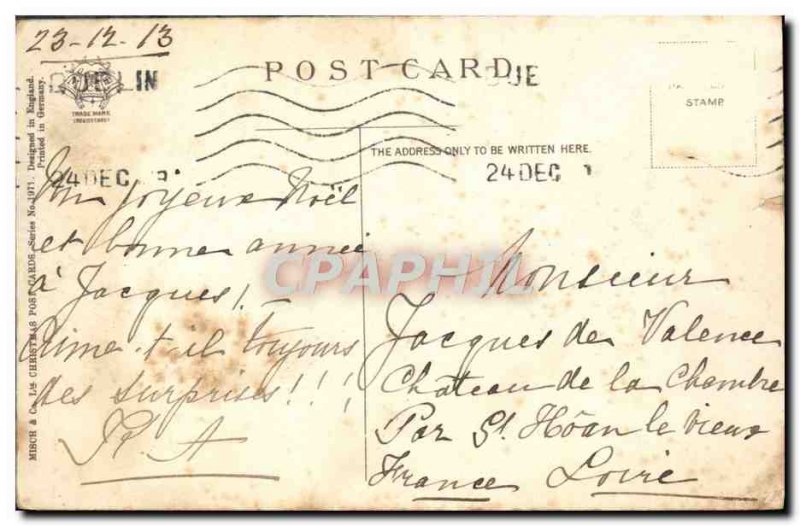 23-12-13
POST CARD
TRADE MARK
24 DEC
24 DEC
STAMP
THE ADDRESS ONLY TO BE WRITTEN HERE.
MISCH & Co. Ltd CHRISTMAS POST CARDS. Series No. 1971. Designed in England.
Printed in Germany.
Un joyeux Noël
et bonne année
à Jacques! _
Aime-t-il toujours
des surprises!!!
A
CPAPHIL
Monsieur
Jacques de Valence
Château de la Chambre
Par St Hôan le vieux
France Loire